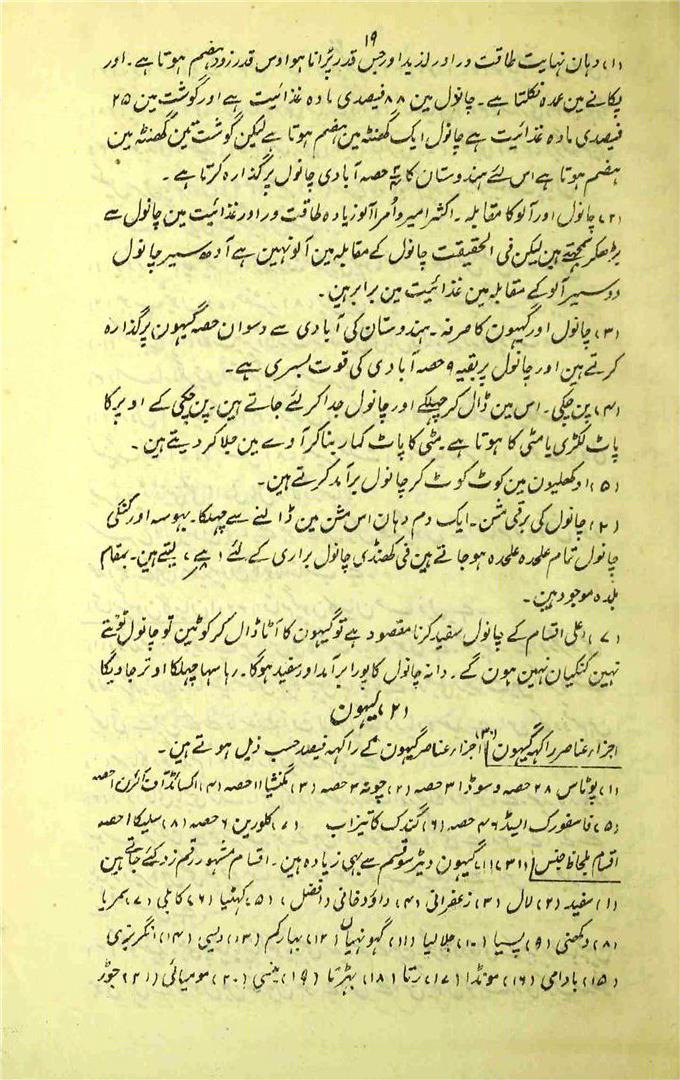 ۱۹
(۱) دہان نہایت طاقت ور اور لذیذ اور جس قدر پُرانا ہو اوس قدر زود ہضم ہوتا ہے۔ اور
پکانے مین عمدہ نکلتا ہے۔ چانول مین ۸۸ فیصدی مادہ غذائیت ہے اور گوشت مین ۲۵
فیصدی مادہ غذائیت ہے چانول ایک گھنٹہ مین ہضم ہوتا ہے لیکن گوشت تین گھنٹہ مین
ہضم ہوتا ہے اس لئے ہندوستان کا حصہ آبادی چانول پر گذارہ کرتا ہے۔
(۲) چانول اور آلو کا مقابلہ۔ اکثر امیر و اُمرا آلو زیادہ طاقت ور اور غذائیت مین چانول سے
بڑھکر سمجھتے ہین لیکن فی الحقیقت چانول کے مقابلہ مین آلو نہین ہے آدھ سیر چانول
دو سیر آلو کے مقابلہ مین غذائیت مین برابر ہین۔
(۳) چانول اور گیہون کا صرفہ۔ ہندوستان کی آبادی سے دسوان حصہ گیہون پر گذارہ
کرتے ہین اور چانول پر بقیہ ۹ حصہ آبادی کی قوت بسری ہے۔
(۴) پن چکی۔ اس مین ڈال کر چہلکے اور چانول جدا کر لئے جاتے ہین۔ پن چکی کے اوپر کا
پاٹ لکڑی یا مٹی کا ہوتا ہے مٹی کا پاٹ کمار بنا کر آوے مین جلا کر دیتے ہین۔
(۵) اوکھلیون مین کوٹ کوٹ کر چانول برآمد کرتے ہین۔
(۶) چانول کی برقی مشن۔ ایک دم دہان اس مشن مین ڈالنے سے چہلکا۔ بہوسہ اور کنکی
چانول تمام علحدہ علحدہ ہو جاتے ہین فی کھنڈی چانول براری کے لئے لیتے ہین۔ بمقام
بلدہ موجود ہین۔
(۷) اعلی اقسام کے چانول سفید کرنا مقصود ہے تو گیہون کا آٹا ڈال کر کوٹین تو چانول ٹوٹتے
نہین کنکیان نہین ہون گے۔ دانہ چانول کا پورا برآمد اور سفید ہوگا۔ رہا سہا چہلکا اوتر جاویگا
(۲) گیہون
اجزاء عناصر راکہہ گیہون (۳۰) اجزاء عناصر گیہون کے راکہہ فیصد حسب ذیل ہوتے ہین۔
(۱) پوٹاس ۲۸ حصہ و سوڈا ۳ حصہ (۲) چونہ ۲ حصہ (۳) مگنشیا ۱۱ حصہ (۴) اکسائڈ آف آئرن ۱ حصہ
(۵) فاسفورک ایسڈ ۴۶ حصہ (۶) گندک کا تیزاب (۷) کلورین ۶ حصہ (۸) سلیکا ۱ حصہ
اقسام بلحاظ جنس (۳۱) (۱) گیہون دیڑسو قسم سے بہی زیادہ ہین۔ اقسام مشہور رقم زد کیئے جاتے ہین
(۱) سفید (۲) لال (۳) زعفرانی (۴) داؤدخانی (افضل) (۵) کہٹیا (۶) کابلی (۷) بمریا
(۸) دکھنی (۹) پسیا (۱۰) جلالیا (۱۱) گہونہیان (۱۲) بہارکم (۱۳) دیسی (۱۴) انگریزی
(۱۵) بادامی (۱۶) مونڈا (۱۷) رتا (۱۸) بہڑتا (۱۹) بنسی (۲۰) مومیائی (۲۱) جوڑ